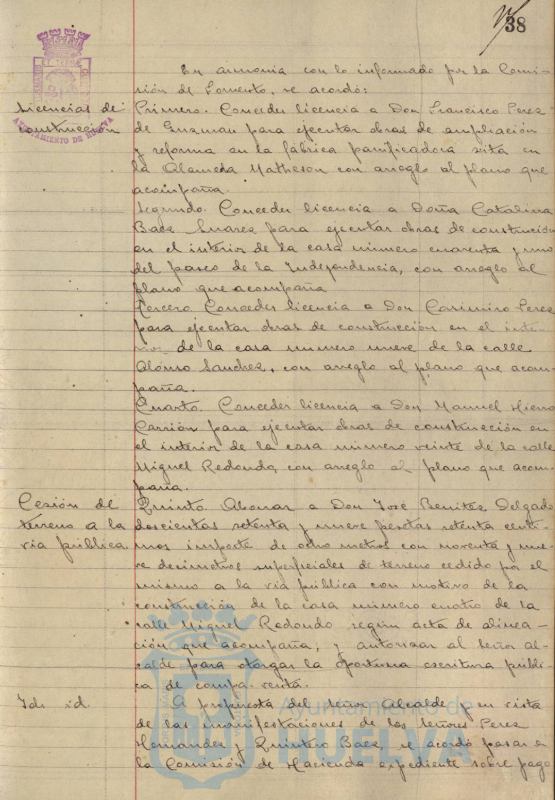 38
En armonia con lo informado por la Comi-
sión de Fomento, se acordó:
Licencias de
construcción
AYUNTAMIENTO DE HUELVA
Primero. Conceder licencia a Don Francisco Perez
de Guzman para ejecutar obras de ampliación
y reforma en la fábrica panificadora sita en
la Alameda Matheson con arreglo al plano que
acompaña.
Segundo. Conceder licencia a Doña Catalina
Baez Suarez para ejecutar obras de construcción
en el interior de la casa número cuarenta y uno
del paseo de la Independencia, con arreglo al
plano que acompaña
Tercero. Conceder licencia a Don Casimiro Perez
para ejecutar obras de construcción en el inte-
rior de la casa número nueve de la calle
Alonso Sanchez, con arreglo al plano que acom-
paña.
Cuarto. Conceder licencia a Don Manuel Hierro
Carrión para ejecutar obras de construcción en
el interior de la casa número veinte de la calle
Miguel Redondo, con arreglo al plano que acom-
paña.
Cesión de
terreno a la
via pública
Quinto. Abonar a Don José Benitez Delgado
doscientas setenta y nueve pesetas setenta centi-
mos importe de ocho metros con noventa y nue-
ve decimetros superficiales de terreno cedido por el
mismo a la via pública con motivo de la
construcción de la casa número cuatro de la
calle Miguel Redondo segun acta de alinea-
ción que acompaña; y autorizar al señor al-
calde para otorgar la oportuna escritura públi-
ca de compra-venta.
Idr id.
A propuesta del señor Alcalde y en vista
de las manifestaciones de los señores Perez
Hernandez y Quintero Baez, se acordó pasar a
la Comisión de Hacienda expediente sobre pago
Ayuntamiento de
HUELVA